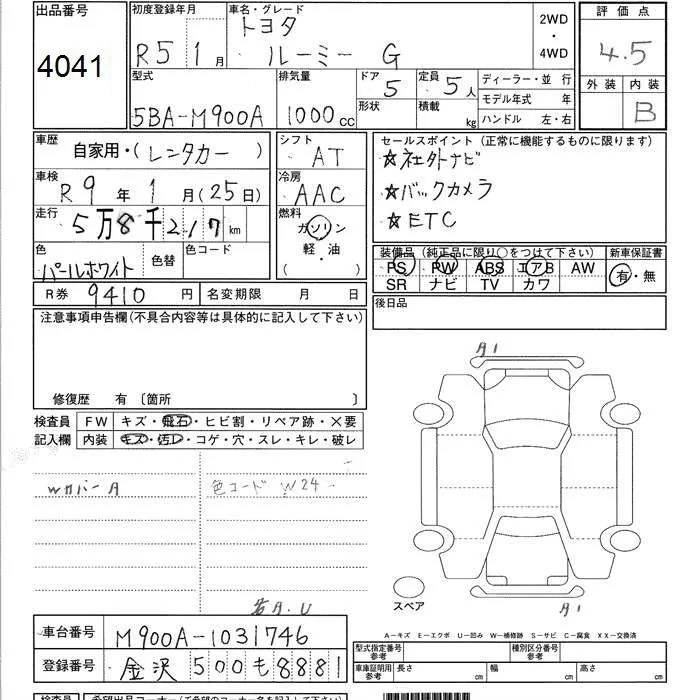 出品番号 初度登録年月 車名・グレード 2WD・4WD 評価点
4041 R5 1月 トヨタ ルーミー G 4.5
型式 排気量 ドア 5 定員 5人 ディーラー・並行 外装 内装
5BA-M900A 1000cc 形状 積載 kg モデル年式 年 B
ハンドル 左・右
車歴 自家用・(レンタカー) シフト AT セールスポイント(正常に機能するものに限ります)
車検 R9年 1月(25日) 冷房 AAC ☆社外ナビ
走行 5万8千217km 燃料 ガソリン 軽・油 ( ) ☆バックカメラ
☆ETC
色 パールホワイト 色替 色コード 装備品(純正品に限り○をつけて下さい) 新車保証書
PS PW ABS エアB AW 有・無
SR ナビ TV カワ
R券 9410円 名変期限 月 日 後日品
注意事項申告欄(不具合内容等は具体的に記入して下さい)
修復歴 有 〔箇所 〕
検査員 FW キズ・飛石・ヒビ割・リペア跡・×要
記入欄 内装 キズ・汚レ・コゲ・穴・スレ・キレ・破レ
A1
Wカバー A 色コード W24
スペア
A1
A.U
A-キズ E-エクボ U-凹み W-補修跡 S-サビ C-腐食 XX-交換済
車台番号 M900A-1031746 型式指定番号 参考 種別区分番号 参考
登録番号 金沢 500 も 8881 車庫証明用 参考 長さ cm 幅 cm 高さ cm
検査員 希望出品コーナー(ご希望のコーナー名を記入して下さい)